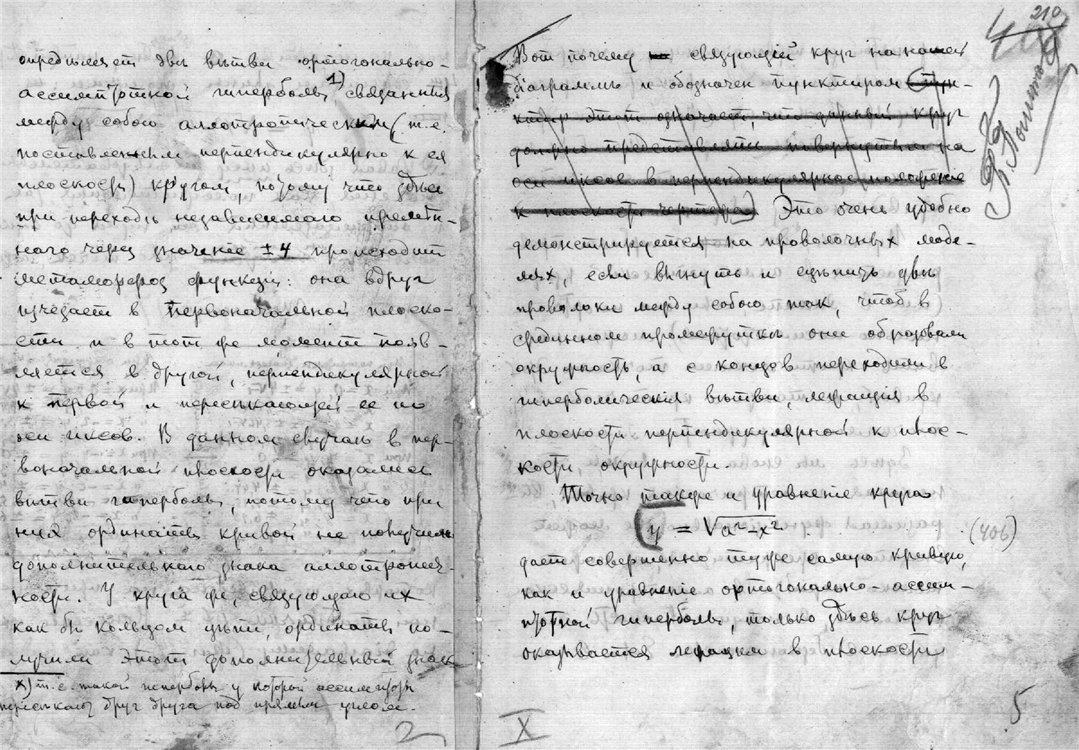 опредѣляетъ двѣ вѣтви ортогонально-
ассимптотной гиперболы 1) связанныя
между собою аллотропическимъ (т.е.
поставленнымъ перпендикулярно къ ея
плоскости) кругомъ, потому что здѣсь
при переходѣ независимаго перемѣн-
наго черезъ значеніе ±4 происходитъ
метаморфоза функціи: она вдругъ
изчезаетъ въ первоначальной плоско-
сти и въ тотъ же моментъ появ-
ляется въ другой, перпендикулярной
къ первой и пересѣкающей ее по
оси иксовъ. Въ данномъ случаѣ въ пер-
воначальной плоскости оказались
вѣтви гиперболы, потому что при
нихъ ордината кривой не получила
дополнительнаго знака аллотропич-
ности. У круга же, связующаго ихъ
какъ бы кольцомъ цѣпи, ординаты по-
лучили этотъ дополнительный знакъ
x) т.е. такой гиперболы у которой ассимптоты
пересѣкаютъ другъ друга подъ прямымъ угломъ.
2
210
Вотъ почему связующій кругъ на нашей
діаграммѣ и обозначенъ пунктиромъ (пун-
ктиръ этотъ означаетъ, что данный кругъ
должно представлять повернутымъ на
оси иксовъ въ перпендикулярное положеніе
къ плоскости чертежа) Это очень удобно
демонстрируется на проволочныхъ моде-
ляхъ, если выгнуть и сцѣпить двѣ
проволоки между собою такъ, чтобъ въ
срединномъ промежуткѣ они образовали
окружность, а съ концовъ переходили въ
гиперболическія вѣтви, лежащія въ
плоскости перпендикулярной къ плос-
кости окружности.
Точно также и уравненіе круга
y = √a²-x² (406)
даетъ совершенно туже самую кривую,
какъ и уравненіе ортогонально-ассим-
птотной гиперболы, только здѣсь кругъ
оказывается лежащимъ въ плоскости
X
5